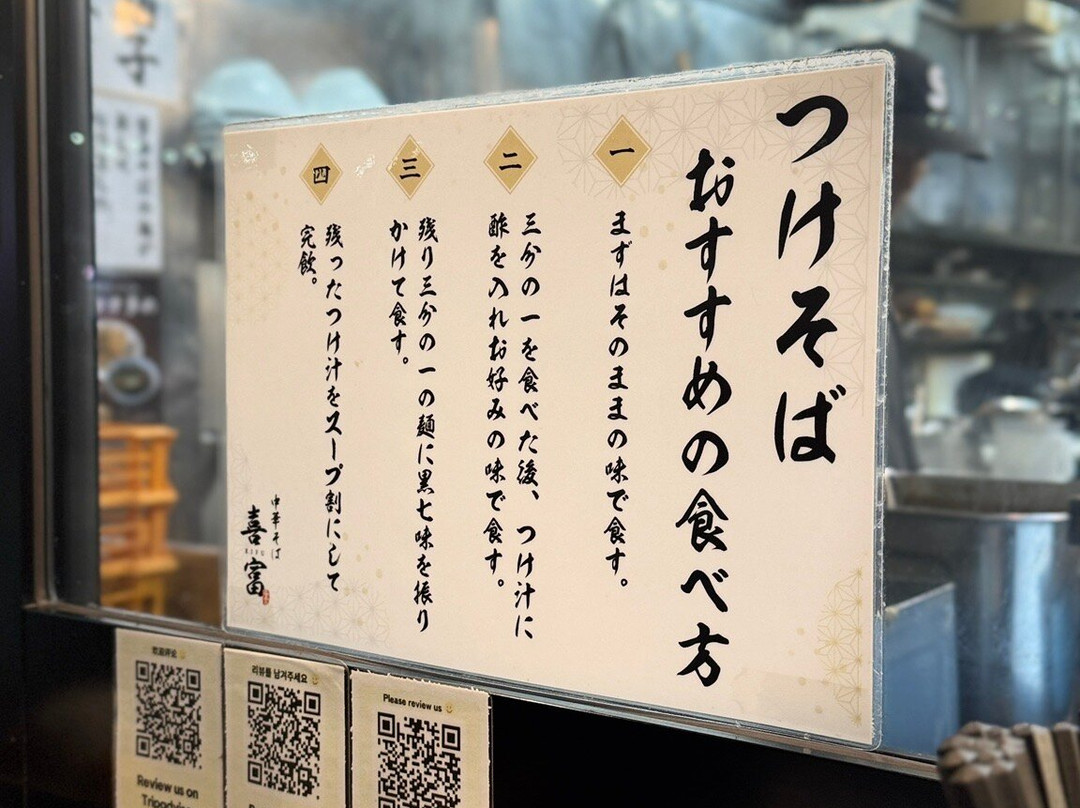 つけそば
おすすめの食べ方
一
まずはそのままの味で食す。
二
三分の一を食べた後、つけ汁に
酢を入れお好みの味で食す。
三
残り三分の一の麺に黒七味を振り
かけて食す。
四
残ったつけ汁をスープ割にして
完飲。
中華そば
喜富
欢迎评论
Review us on
리뷰를 남겨주세요
Please review us